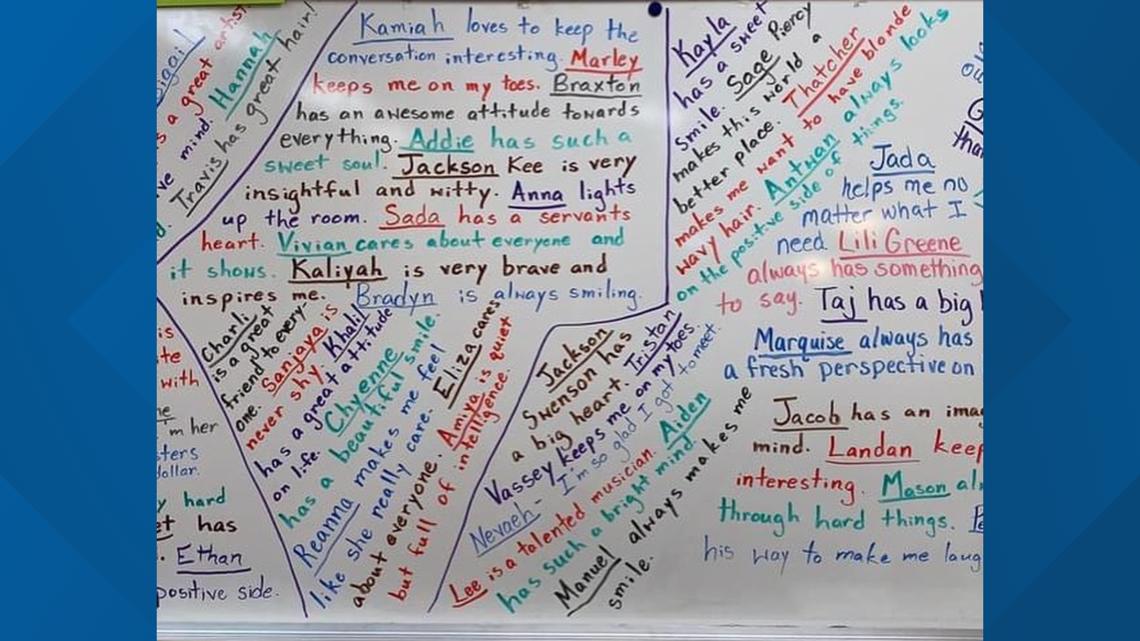 s a great artist
ve mind. Hannah
Travis has great hair!
Kamiah loves to keep the
conversation interesting. Marley
keeps me on my toes. Braxton
has an awesome attitude towards
everything. Addie has such a
sweet soul. Jackson Kee is very
insightful and witty. Anna lights
up the room. Sada has a servants
heart. Vivian cares about everyone and
it shows. Kaliyah is very brave and
inspires me. Bradyn is always smiling.
Kayla
has a sweet
smile. Sage Piercy
makes this world a
better place. Thatcher
makes me want to have blonde
wavy hair. Antwan always looks
on the positive side of things.
Jada
helps me no
matter what I
need. Lili Greene
always has something
to say. Taj has a big
Marquise always has
a fresh perspective on
Jacob has an ima
mind. Landan keep
interesting. Mason al
through hard things.
his way to make me laug
Charli
is a great
friend to every-
one. Sanjaya is
never shy. Khalil
has a great attitude
on life. Chyenne
has a beautiful smile.
Reanna makes me feel
like she really care. Eliza cares
about everyone. Amiya is quiet
but full of intelligence.
Jackson
Swenson has
a big heart. Tristan
Vassey keeps me on my toes.
Nevaeh - I'm so glad I got to meet.
Lee is a talented musician. Aiden
has such a bright mind.
Manuel always makes me
smile.
is
te
with
'm her
sters
dollar.
y hard
et has
Ethan
positive side.